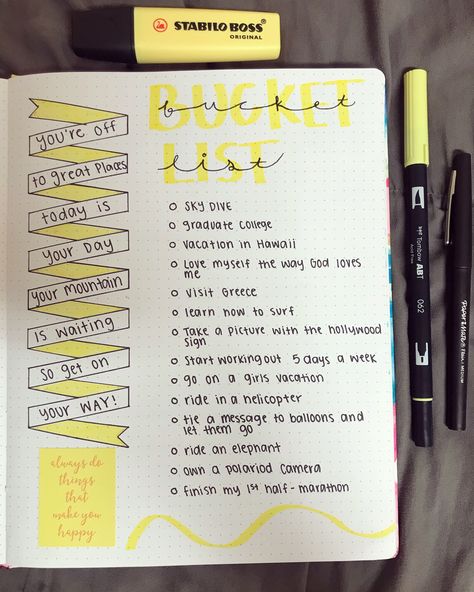 STABILO BOSS
ORIGINAL
BUCKET
bucket
LIST
list
you're off
to great Places
today is
your Day
your mountain
is waiting
so get on
your WAY!
always do
things
that
make you
happy
SKY DIVE
graduate college
vacation in Hawaii
Love myself the way God loves
me
visit Greece
learn how to surf
Take a picture with the hollywood
sign
start working out 5 days a week
go on a girls vacation
ride in a helicopter
tie a message to balloons and
let them go
ride an elephant
own a polariod camera
finish my 1st half-marathon
Tombow ABT
062